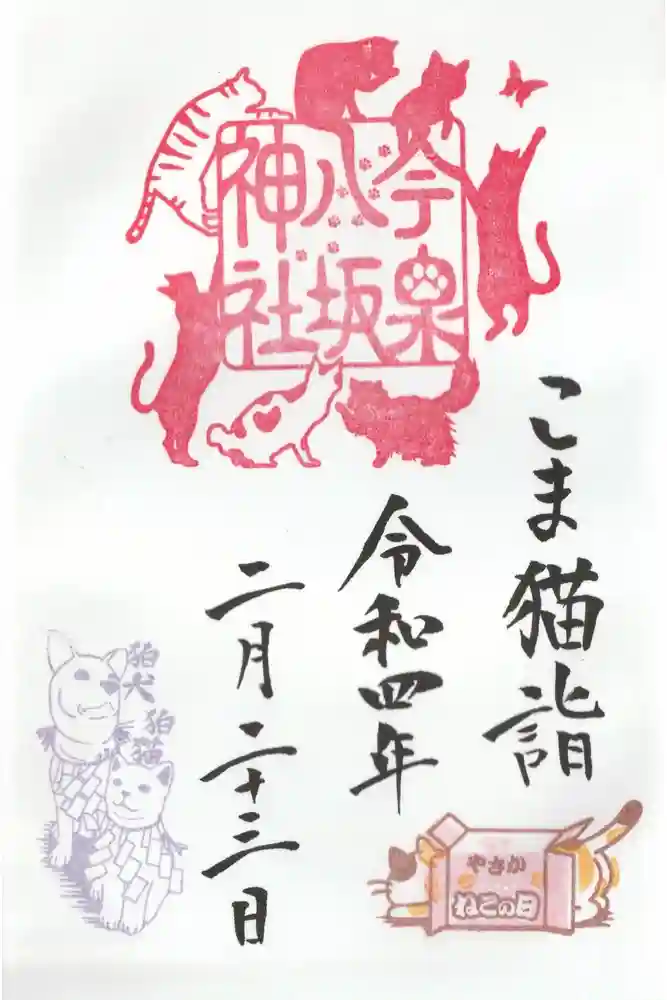 今泉
八坂
神社
こしま猫詣
令和四年
二月二十三日
狛犬
狛猫
やさか
ねこの日